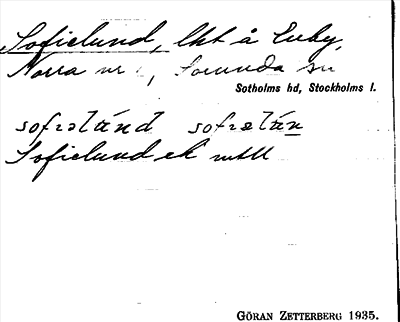 Sofielund, lht å Enby,
Norra nr 1, Sorunda sn
Sotholms hd, Stockholms l.
sofiəlúnd sofiəlún
Sofielund ek
GÖRAN ZETTERBERG 1935.